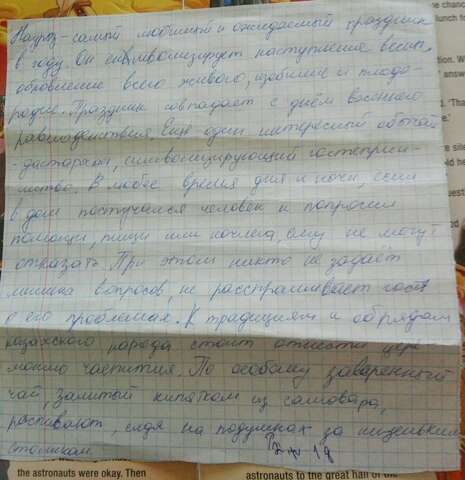 Наурыз-самый любимый и ожидаемый праздник
в году. Он символизирует наступление весны,
обновление всего живого, изобилие и плодо-
родие. Праздник совпадает с днём весеннего
равноденствия. Ещё один интересный обычай
-дастархан, символизирующий гостеприи-
мство. В любое время дня и ночи, если
в дом постучался человек и попросил
помощи, пищи или ночлега, ему не могут
отказать. При этом никто не задаёт
лишних вопросов, не расспрашивает гостя
о его проблемах. К традициям и обрядам
казахского народа стоит отнести цере-
монию чаепития. По особому заваренный
чай, залитый кипятком из самовара,
распивают, сидя на подушках за низенькими
столиками.
the chance
lunch fo
the silen
the astronauts were okay. Then
astronauts to the great hall of the